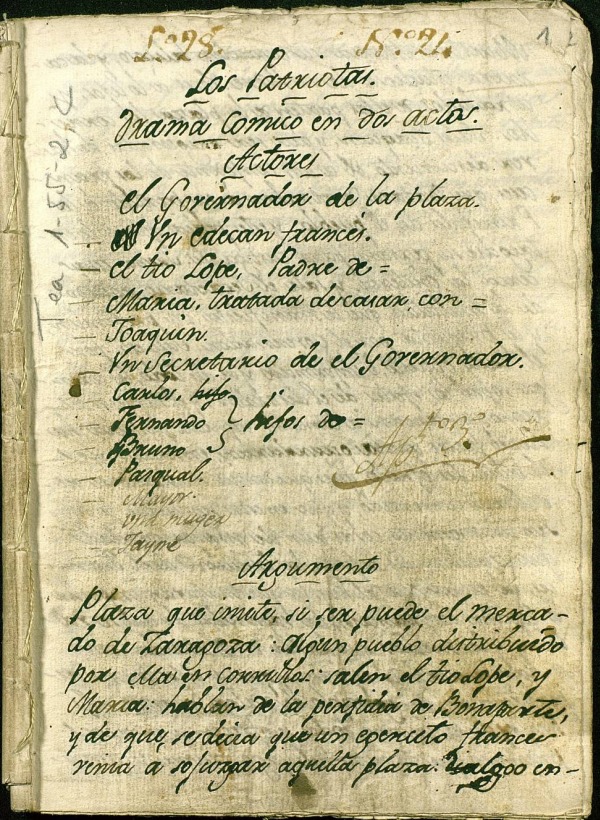 Lº 28. Nº 21.
1
Tea 1-55-21, a
Los Patriotas.
Drama Comico en dos actos.
Actores
el Governador de la plaza.
Un edecan frances.
el tio Lope, Padre de =
Maria, tratada de casar con =
Joaquin.
Un Secretario de el Governador.
Carlos, hijo
Fernando } hijos de =
Bruno
Pasqual.
Mayor.
una muger
Jayme
Argumento
Plaza que imite, si ser puede el merca-
do de Zaragoza: algun pueblo distribuido
por ella en corrillos: salen el tio Lope, y
Maria: hablan de la perfidia de Bonaparte,
y de que se decia que un egercito frances
venia á sojuzgar aquella plaza: en-